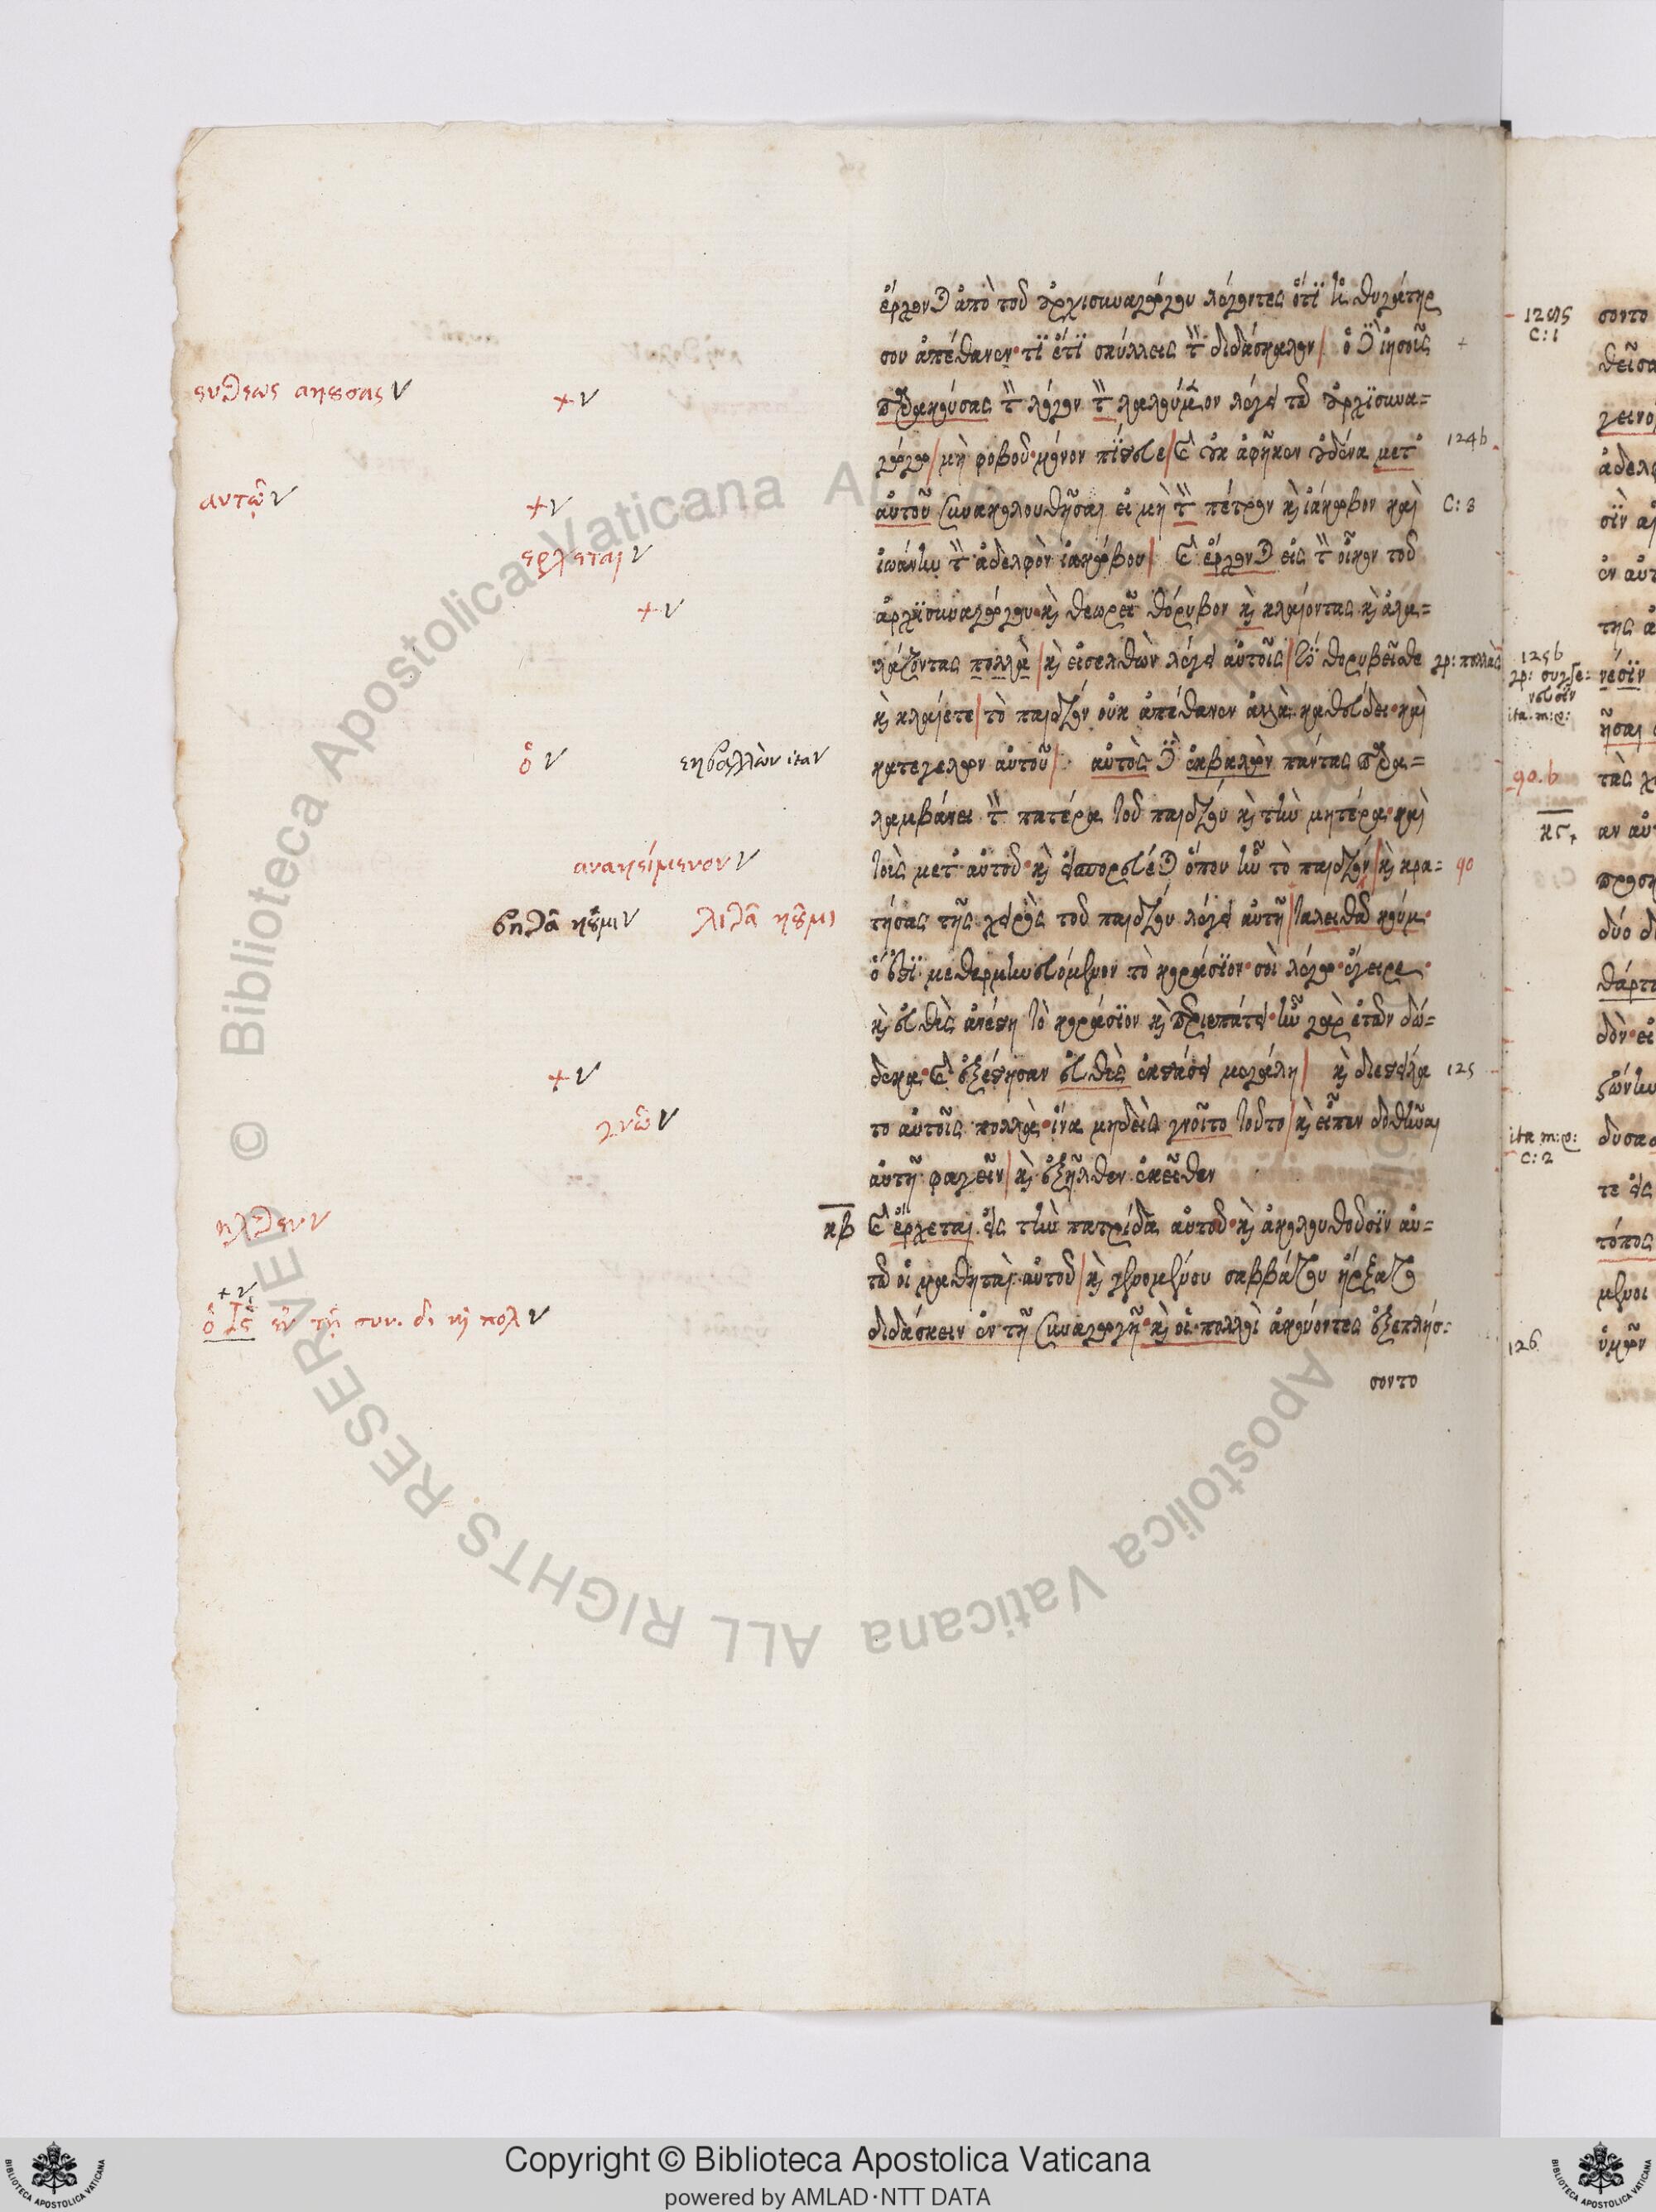 ἔρχονται ἀπὸ τοῦ ἀρχισυναγώγου λέγοντες ὅτι ἡ θυγάτηρ
σου ἀπέθανεν· τί ἔτι σκύλλεις τὸν διδάσκαλον / ὁ δὲ ἰησοῦς +
ευθεως ακουσας ν
+ ν
παρακούσας τὸν λόγον τὸν λαλούμενον λέγει τῷ ἀρχισυνα=
γώγῳ / μὴ φοβοῦ· μόνον πίστευε / καὶ οὐκ ἀφῆκεν οὐδένα μετ 124b
αυτῷ ν
+ ν
αὐτοῦ συνακολουθῆσαι εἰ μὴ τὸν πέτρον καὶ ἰάκωβον καὶ C: 3
ερχεται ν
ἰωάννην τὸν ἀδελφὸν ἰακώβου / καὶ ἔρχονται εἰς τὸν οἶκον τοῦ
+ ν
ἀρχισυναγώγου· καὶ θεωρεῖ θόρυβον καὶ κλαίοντας καὶ ἀλα=
λάζοντας πολλὰ / καὶ εἰσελθὼν λέγει αὐτοῖς / τί θορυβεῖσθε γρ: πολλὰς
καὶ κλαίετε / τὸ παιδίον οὐκ ἀπέθανεν ἀλλὰ καθεύδει· καὶ
ὁ ν
εκβαλλὼν ita ν
κατεγέλων αὐτοῦ / αὐτὸς δὲ ἐκβαλὼν πάντας παρα=
λαμβάνει τὸν πατέρα τοῦ παιδίου καὶ τὴν μητέρα· καὶ
ανακείμενον ν
τοὺς μετ αὐτοῦ· καὶ εἰσπορεύεται ὅπου ἦν τὸ παιδίον / καὶ κρα= 90
λιθᾶ κοῦμι
τήσας τῆς χειρὸς τοῦ παιδίου λέγει αὐτῇ / ταλειθα κούμ·
ὅ ἐστι μεθερμηνευόμενον τὸ κοράσιον· σοὶ λέγω· ἔγειρε·
καὶ εὐθὺς ἀνέστη τὸ κοράσιον καὶ περιεπάτει· ἦν γὰρ ἐτῶν δώ=
+ ν
δεκα· καὶ ἐξέστησαν εὐθὺς ἐκστάσει μεγάλῃ / καὶ διεστείλα 125
γνῶ ν
το αὐτοῖς πολλὰ· ἵνα μηδεὶς γνοῖ τοῦτο / καὶ εἶπεν δοθῆναι
αὐτῇ φαγεῖν / καὶ ἐξῆλθεν ἐκεῖθεν
ηλθεν ν
κβ καὶ ἔρχεται εἰς τὴν πατρίδα αὐτοῦ· καὶ ἀκολουθοῦσιν αὐ=
τῷ οἱ μαθηταὶ αὐτοῦ / καὶ γενομένου σαββάτου ἤρξατο
+ ν
ὁ ις ἐν τῇ συν. δι. καὶ πολ ν
διδάσκειν ἐν τῇ συναγωγῇ· καὶ οἱ πολλοὶ ἀκούοντες ἐξεπλήσ=
σοντο
C: 1
σοντο
125b
ita m: p:
90.b
ita m: p:
C: 2
126
Copyright © Biblioteca Apostolica Vaticana
powered by AMLAD·NTT DATA